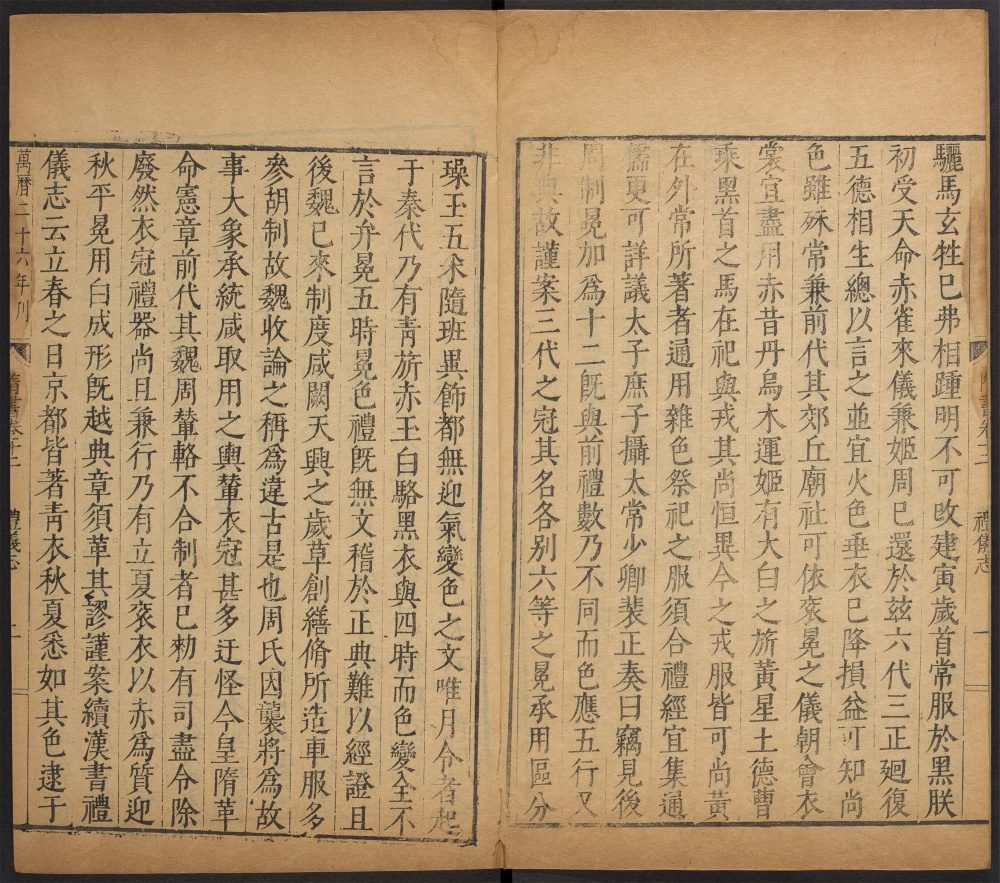 驪馬玄牲已弗相踵明不可改建寅歲首常服於黑朕
初受天命赤雀來儀兼姬周已還於兹六代三正廻復
五德相生總以言之並宜火色垂衣已降損益可知尚
色雖殊常兼前代其郊丘廟社可依衮冕之儀朝會衣
裳宜盡用赤昔丹烏木運姬有大白之旂黃星土德曹
乘黑首之馬在祀與戎其尚恒異今之戎服皆可尚黃
在外常所著者通用雜色祭祀之服須合禮經宜集通
儒更可詳議太子庶子攝太常少卿裴正奏曰竊見後
周制冕加爲十二旣與前禮數乃不同而色應五行又
非典故謹案三代之冠其名各别六等之冕承用區分
禮儀志
一
璪玉五采隨班異飾都無迎氣變色之文唯月令者起
于秦代乃有青旂赤玉白駱黑衣與四時而色變全不
言於弁冕五時冕色禮旣無文稽於正典難以經證且
後魏已來制度咸闕天興之歲草創繕脩所造車服多
參胡制故魏收論之稱爲違古是也周氏因襲將爲故
事大象承統咸取用之輿輦衣冠甚多迂怪今皇隋革
命憲章前代其魏周輦輅不合制者已勑有司盡令除
廢然衣冠禮器尚且兼行乃有立夏衮衣以赤爲質迎
秋平冕用白成形旣越典章須革其謬謹案續漢書禮
儀志云立春之日京都皆著青衣秋夏悉如其色逮于
萬曆二十六年刊
禮儀志
二